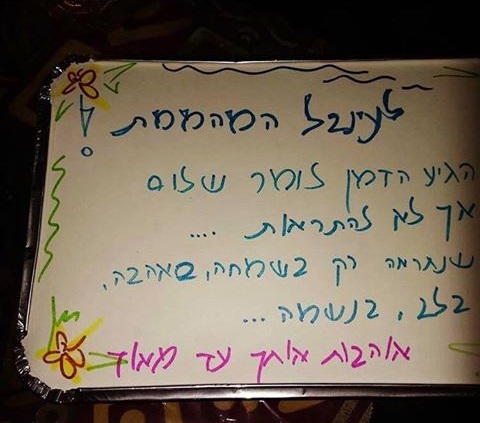 לעינבל המהממת!
הגיע הזמן לומר שלום
אך לא להתראות ....
שנתראה רק בשמחה, באהבה,
בלב, בנשמה ...
אוהבות אותך עד מאוד